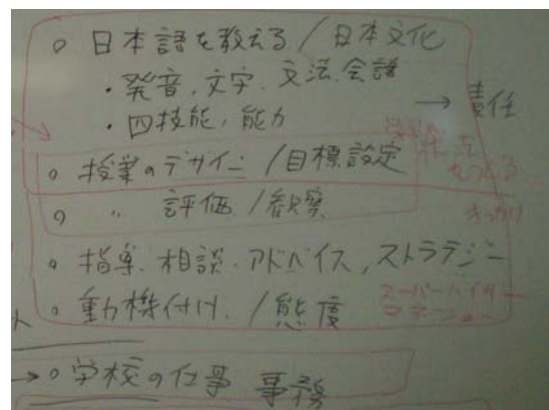 ○ 日本語を教える / 日本文化
・発音, 文字, 文法, 会話
・四技能, 能力
→ 責任
○ 授業のデザイン / 目標設定
○ 〃 評価 / 観察
きっかけ
○ 指導, 相談・アドバイス, ストラテジー
○ 動機付け, / 態度
スーパーバイザー
マネージャー
→ ○ 学校の仕事 事務